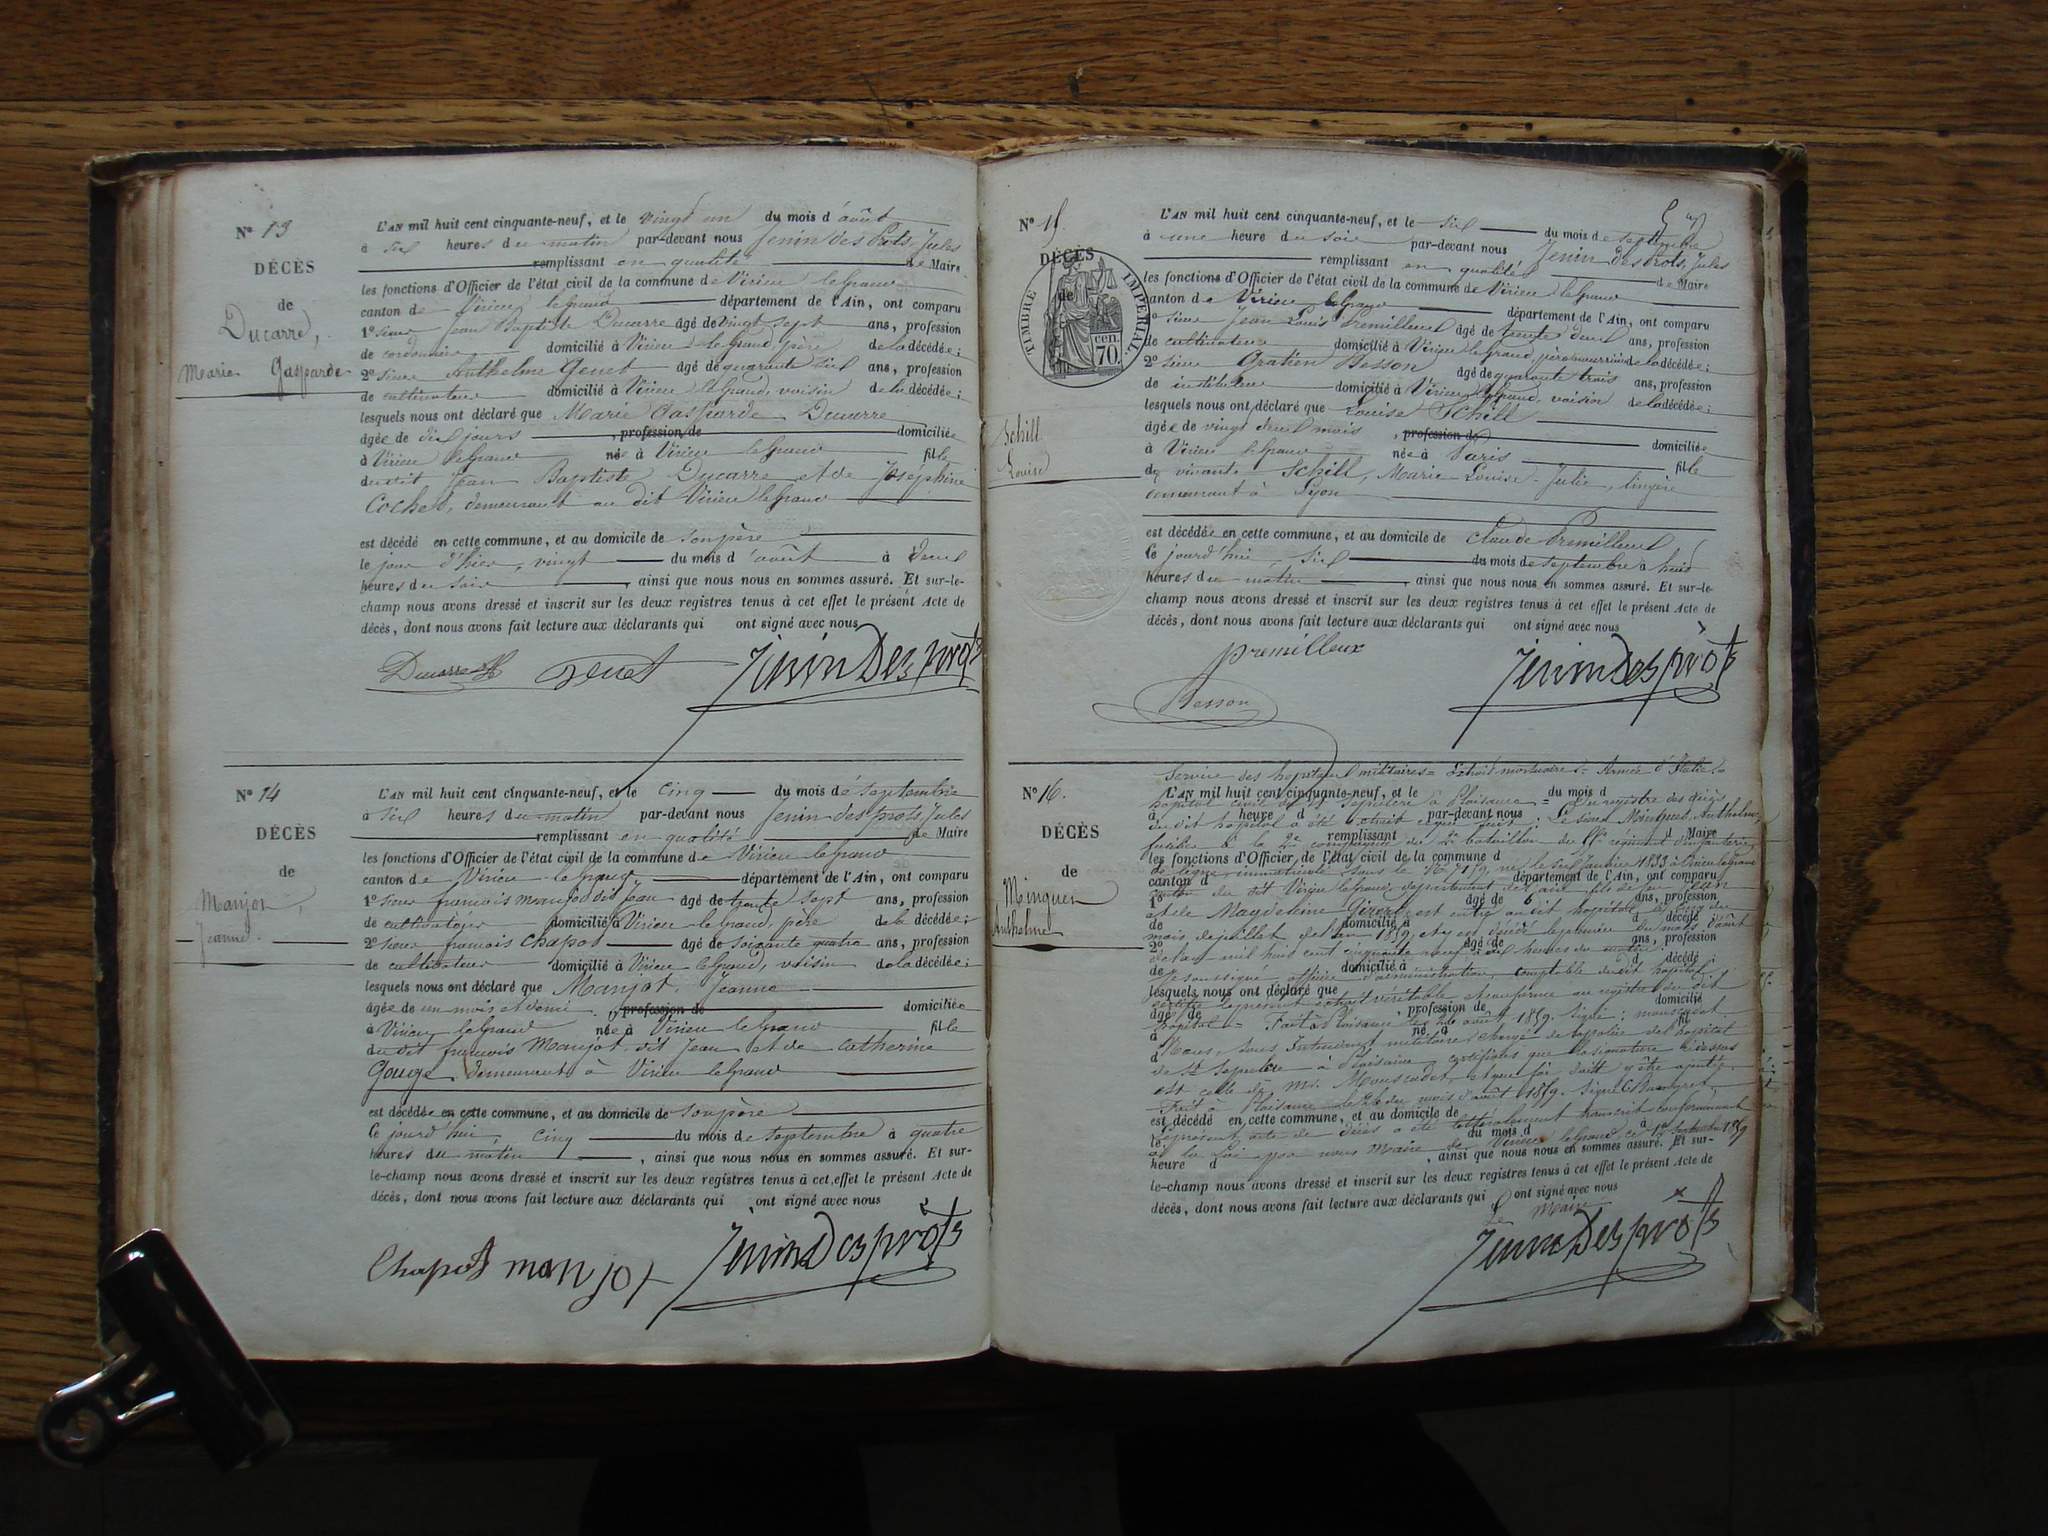 N° 13
DÉCÈS
de
Ducarre,
Marie Gasparde
L'AN mil huit cent cinquante-neuf, et le vingt un du mois d'août
à six heures du matin par-devant nous Jenin des Prots, Jules
remplissant en qualité de Maire
les fonctions d'Officier de l'état civil de la commune de Virieu le grand
canton de Virieu le grand département de l'Ain, ont comparu
1° sieur Jean Baptiste Ducarre âgé de vingt sept ans, profession
de cordonnier domicilié à Virieu le grand, père de la décédée;
2° sieur Anthelme Genet âgé de quarante six ans, profession
de cultivateur domicilié à Virieu le grand, voisin de la décédée;
lesquels nous ont déclaré que Marie Gasparde Ducarre
âgée de dix jours , profession de domiciliée
à Virieu le grand née à Virieu le grand fille
du dit Jean Baptiste Ducarre et de Joséphine
Cochet, demeurant au dit Virieu le grand
est décédé en cette commune, et au domicile de son père
le jour d'hier, vingt du mois d'août à deux
heures du soir , ainsi que nous nous en sommes assuré. Et sur-le-
champ nous avons dressé et inscrit sur les deux registres tenus à cet effet le présent Acte de
décès, dont nous avons fait lecture aux déclarants qui ont signé avec nous
Ducarre Genet Jenin Des prôts
N° 14
DÉCÈS
de
Manjot,
Jeanne.
L'AN mil huit cent cinquante-neuf, et le cinq du mois de septembre
à six heures du matin par-devant nous Jenin des prots, Jules
remplissant en qualité de Maire
les fonctions d'Officier de l'état civil de la commune de Virieu le grand
canton de Virieu le grand département de l'Ain, ont comparu
1° sieur françois manjot dit jean âgé de trente sept ans, profession
de cultivateur domicilié à Virieu le grand, père de la décédée;
2° sieur françois chapot âgé de soixante quatre ans, profession
de cultivateur domicilié à Virieu le grand, voisin de la décédée;
lesquels nous ont déclaré que Manjot, Jeanne
âgée de un mois et demi , profession de domiciliée
à Virieu le grand née à Virieu le grand fille
du dit françois Manjot dit Jean et de Catherine
Gouge demeurant à Virieu le grand
est décédée en cette commune, et au domicile de son père
ce jourd'hui, cinq du mois de septembre à quatre
heures du matin , ainsi que nous nous en sommes assuré. Et sur-
le-champ nous avons dressé et inscrit sur les deux registres tenus à cet effet le présent Acte de
décès, dont nous avons fait lecture aux déclarants qui ont signé avec nous
Chapot manjot Jenin Des prôts
N° 15.
DÉCÈS
de
TIMBRE IMPERIAL
70 cen.
Schill
Louise
L'AN mil huit cent cinquante-neuf, et le six du mois de septembre
à une heure du soir par-devant nous Jenin des Prots, Jules
remplissant en qualité de Maire
les fonctions d'Officier de l'état civil de la commune de Virieu le grand
canton de Virieu le grand département de l'Ain, ont comparu
1° sieur Jean Louis Premilleux âgé de trente deux ans, profession
de cultivateur domicilié à Virieu le grand, père nourricier de la décédée;
2° sieur Gratien Besson âgé de quarante trois ans, profession
de instituteur domicilié à Virieu le grand, voisin de la décédée;
lesquels nous ont déclaré que Louise Schill
âgée de vingt deux mois , profession de domiciliée
à Virieu le grand née à Paris fille
de vivante Schill, Marie Louise Julie, lingère
demeurant à Lyon
est décédée en cette commune, et au domicile de Claude Premilleux
ce jourd'hui six du mois de septembre à huit
heures du matin , ainsi que nous nous en sommes assuré. Et sur-le-
champ nous avons dressé et inscrit sur les deux registres tenus à cet effet le présent Acte de
décès, dont nous avons fait lecture aux déclarants qui ont signé avec nous
premilleux
Besson Jenin Des prôts
N° 16.
DÉCÈS
de
Minguet
Anthelme
Service des hopitaux militaires = Extrait mortuaire = Armée d'Italie
L'AN mil huit cent cinquante-neuf, et le du mois d
hopital civil de St Sepulcre à Plaisance = Du registre des décès
à heure d par-devant nous
du dit hopital a été extrait ce qui suit: Le sieur Minguet, Anthelme
remplissant d Maire
fusilier à la 2e compagnie du 2e bataillon du régiment d'infanterie
les fonctions d'Officier de l'état civil de la commune d
de ligne, immatriculé sous le N° 7159, né le six Janvier 1833 à Virieu le grand
canton d département de l'Ain, ont comparu
canton du dit Virieu le grand, département de l'ain, fils de feu Jean
1° âgé de ans, profession
et de Magdeleine est entré au dit hopital le cinq du
de domicilié à d décédé
mois de juillet de l'an 1859, et y est décédé le premier du mois d'août
2° âgé de ans, profession
de l'an mil huit cent cinquante neuf à six heures du matin
de domicilié à d décédé
Je soussigné officier d'administration, comptable du dit hopital
lesquels nous ont déclaré que
certifie le présent extrait véritable et conforme au registre du dit
âgé de , profession de domicilié
hopital = Fait à Plaisance le 26 août 1859. Signé: mouscadet
à né à fil
Nous, sous Intendant militaire chargé de la police de l'hopital
d
de St Sepulcre à Plaisance, certifions que la signature ci dessus
est celle de Mr. Mouscadet, et que foi doit y être ajoutée.
Fait à Plaisance le 26 du mois d'août 1859. Signé
est décédé en cette commune, et au domicile de
Le présent acte de décès a été littéralement transcrit conformément
le du mois d à
à la loi par nous maire de Virieu le grand, ce septembre 1859
heure d , ainsi que nous nous en sommes assuré. Et sur-
le-champ nous avons dressé et inscrit sur les deux registres tenus à cet effet le présent Acte de
décès, dont nous avons fait lecture aux déclarants qui ont signé avec nous
Le Maire
Jenin Des prôts